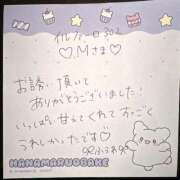 イルフィーロ302
♡.Mさま♡
お誘い頂いて
ありがとうございました!
いっぱい甘えてくれてすっごく
うれしかったです♡
HANAMARUOBAKE